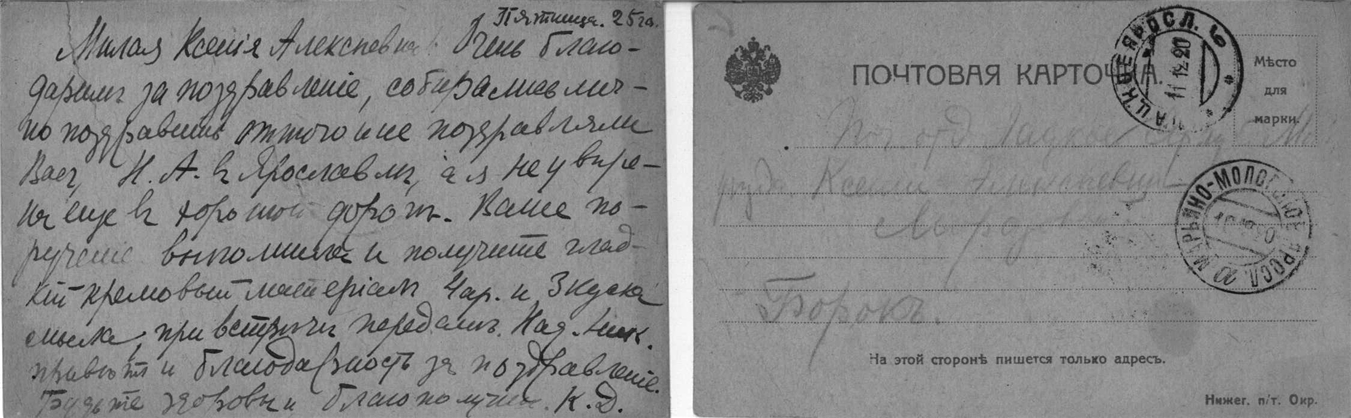 Пятница. 25го.
Милая Ксенія Алексѣевна. Очень благо-
даримъ за поздравленіе, собирались лич-
но поздравить оттого и не поздравляли
Васъ, Н. А. въ Ярославлѣ, а я не увѣре-
на еще въ хорошой дорогѣ. Ваше по-
рученіе выполнила и получите глад-
кій кремовый матеріалъ 4 ар. и 3 куска
мыла, при встрѣчи передамъ. Над. Ник.
привѣтъ и благодарность за поздравленіе.
Будьте здоровы и благополучны. К. Д.
ПОЧТОВАЯ КАРТОЧКА.
Мѣсто
для
марки.
ЯРОСЛ.
11 12 20
Поч. отд.
Ксеніи
МАРЬИНО-МОЛОГСКОЕ ЯРОСЛ.
Борокъ.
На этой сторонѣ пишется только адресъ.
Нижег. п/т. Окр.